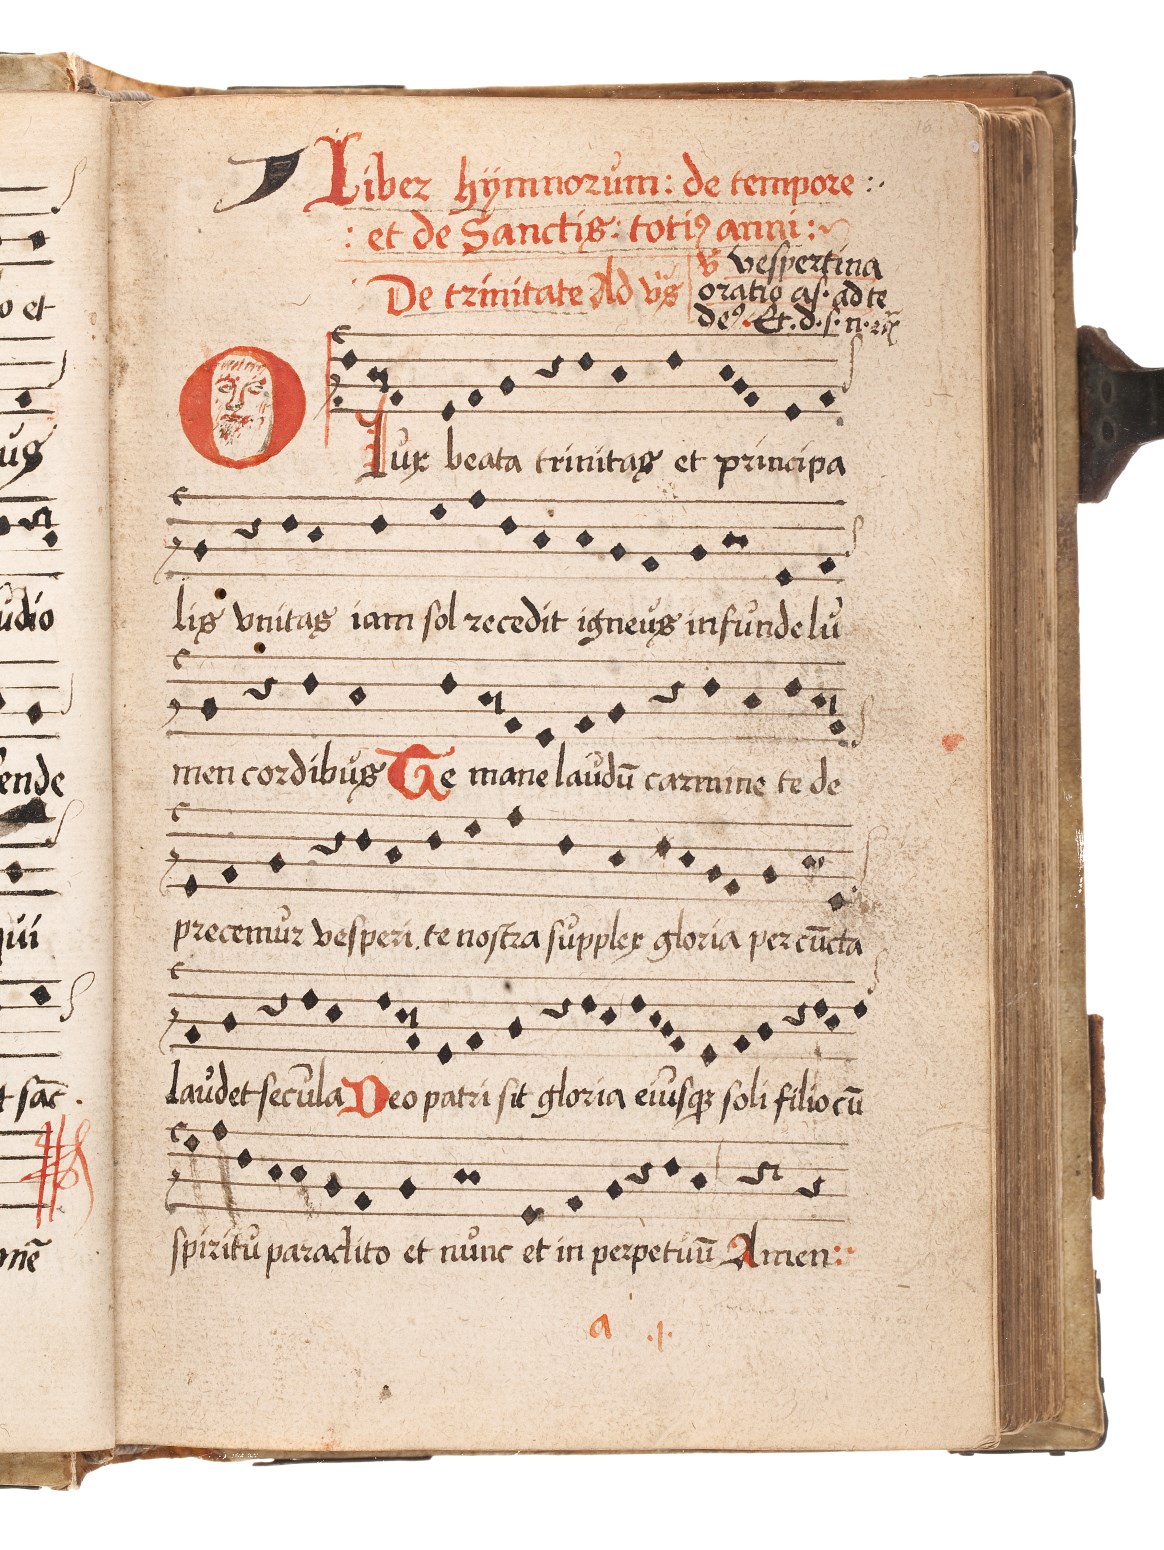 Liber hÿmnorum: de tempore :.
: et de Sanctis: totiꝰ anni:~
De trinitate Ad vs̄
v̄ vespertina
oratio as. ad te
deꝰ. Et. d. s. n.
O Lux beata trinitas et principa
lis vnitas iam sol recedit igneus infunde lu
men cordibus Te mane laudū carmine te de
precemur vesperi. te nostra supplex gloria per cūcta
laudet secula Deo patri sit gloria eiusqꝫ soli filio cū
spiritu paraclito et nunc et in perpetuū Amen:~
a .1.
o et
us
udio
ende
qui
t sāc.
mē